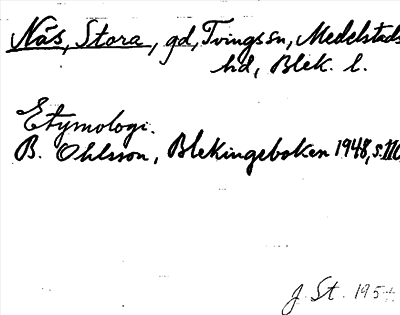 Näs, Stora, gd, Tvings sn, Medelstads
hd, Blek. l.
Etymologi.
B. Ohlsson, Blekingeboken 1948, s.
J. St. 195